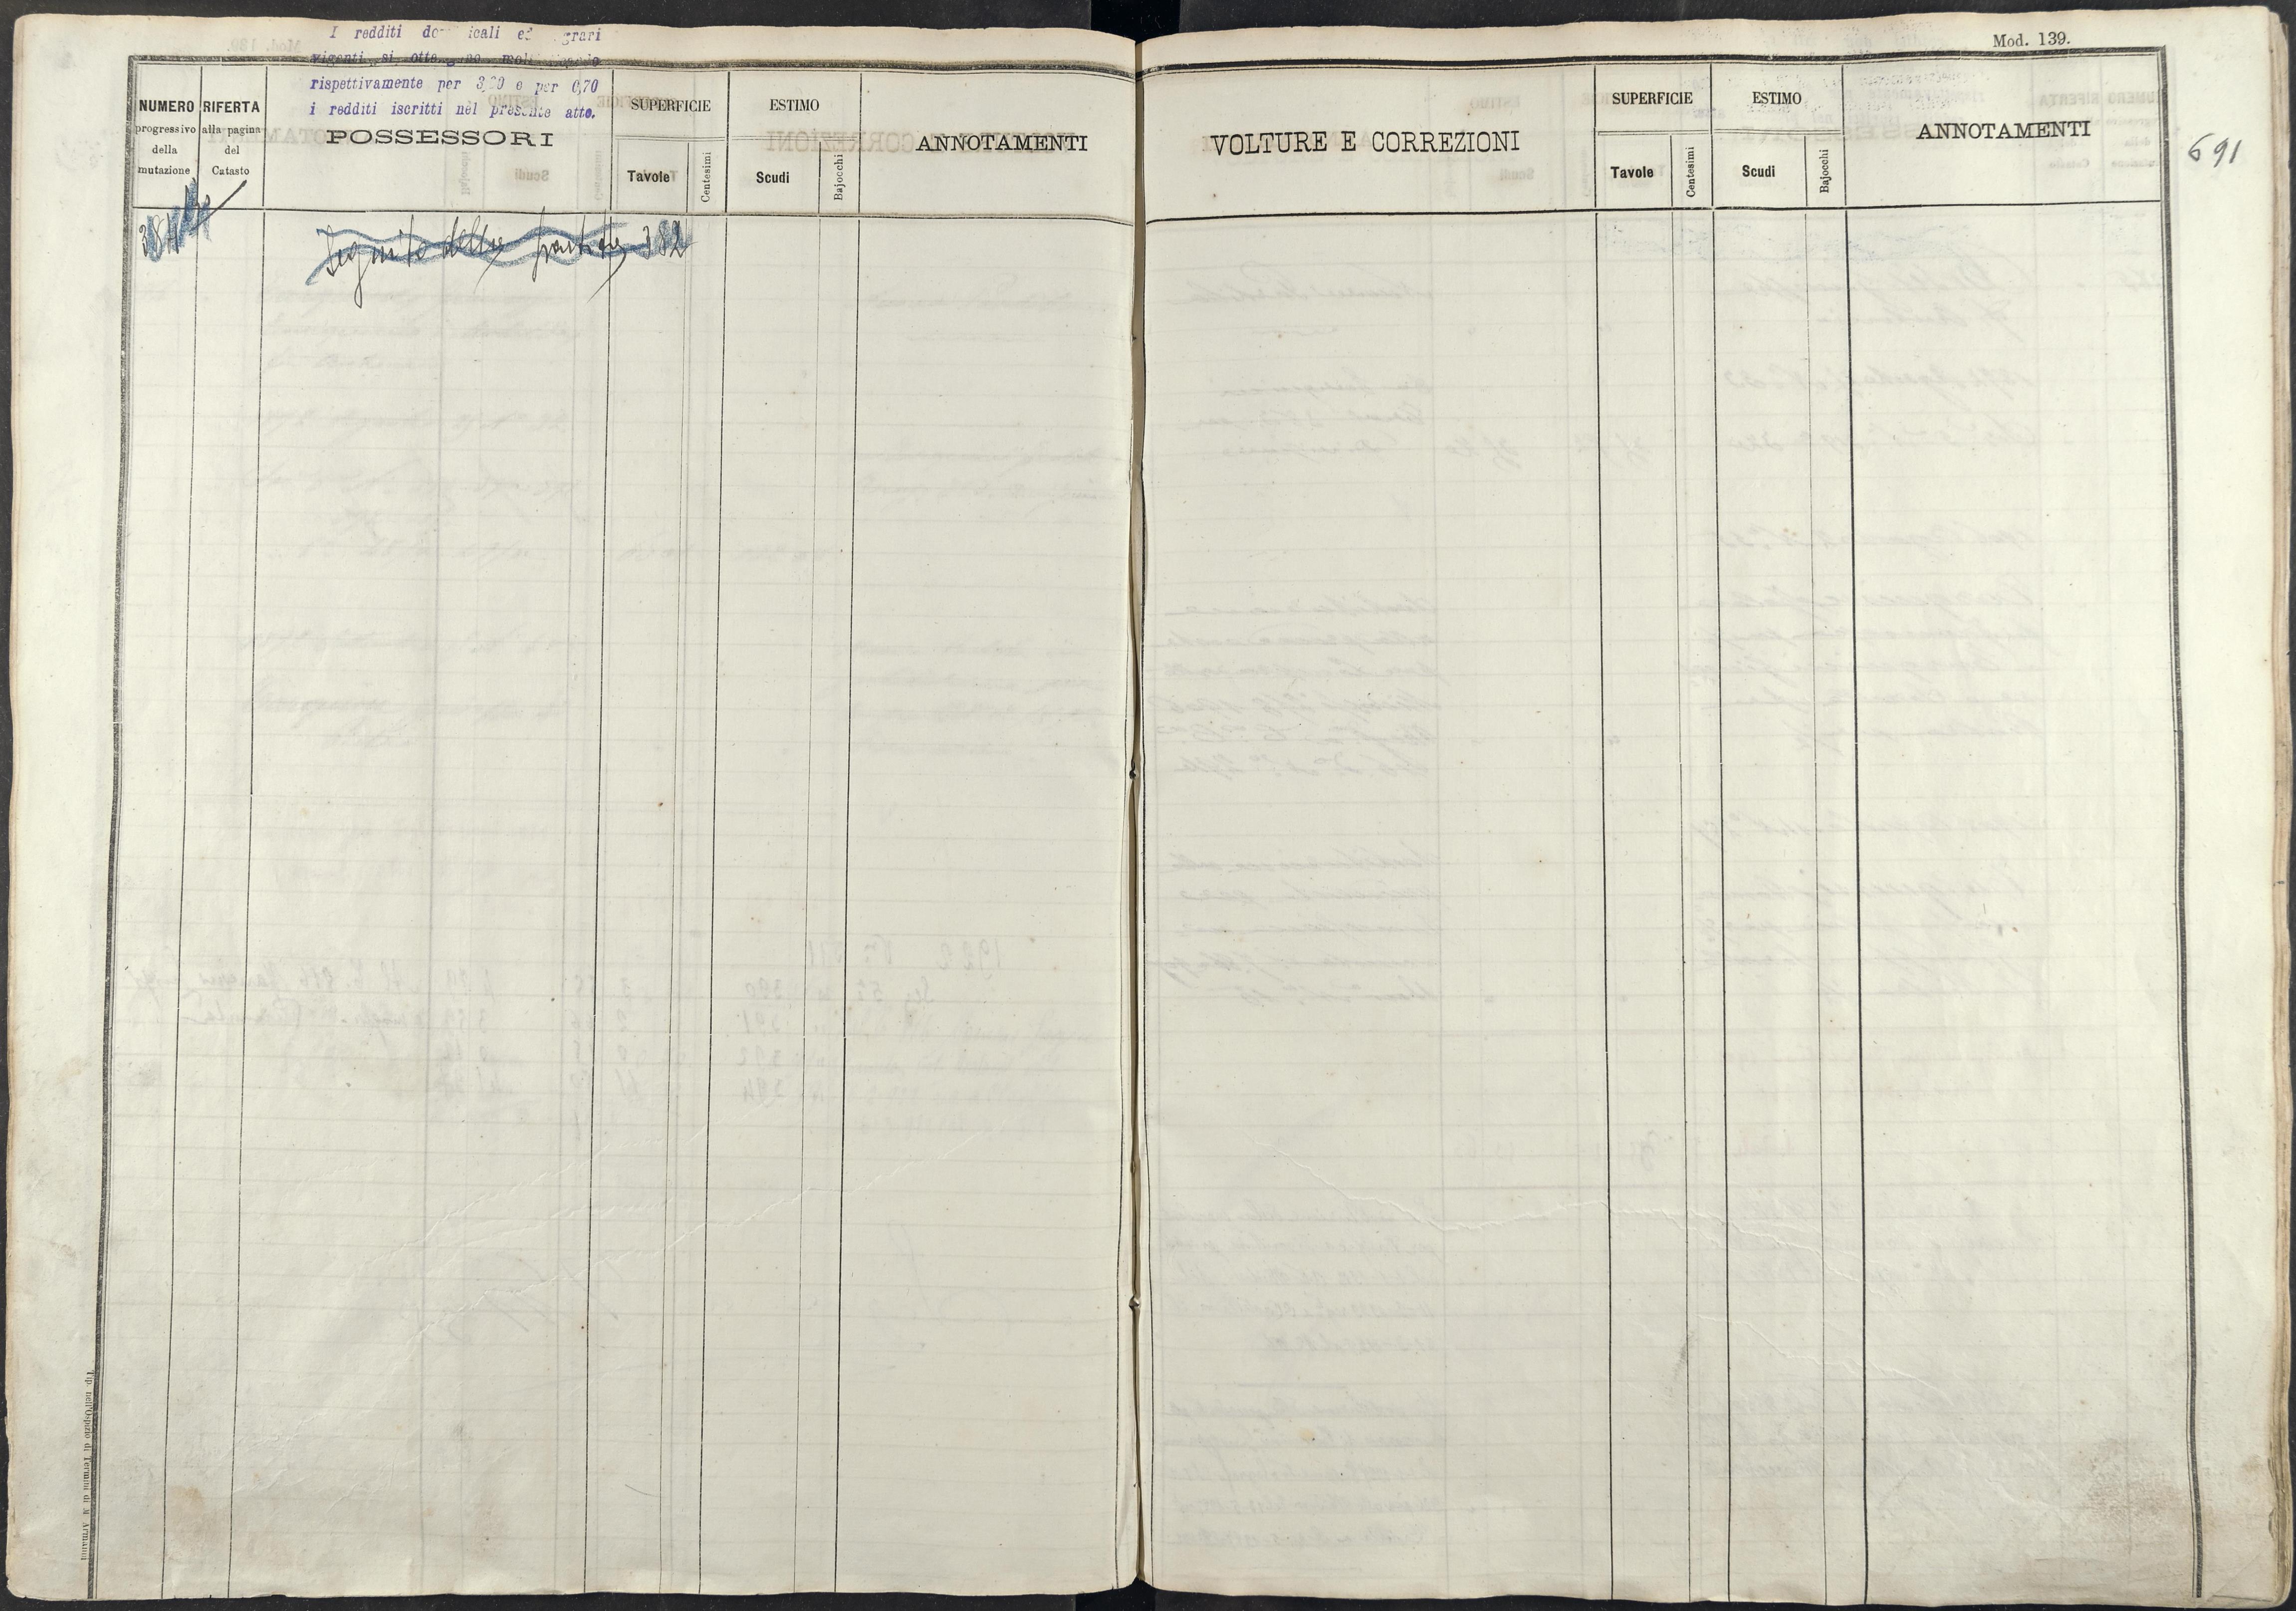 I redditi do icali ed grari
vigenti si otte no mol
rispettivamente per 3,20 e per 0,70
i redditi iscritti nel presente atto.
Mod. 139.
NUMERO
progressivo
della
mutazione
RIFERTA
alla pagina
del
Catasto
POSSESSORI
SUPERFICIE
Tavole
Centesimi
ESTIMO
Scudi
Bajocchi
ANNOTAMENTI
VOLTURE E CORREZIONI
SUPERFICIE
Tavole
Centesimi
ESTIMO
Scudi
Bajocchi
ANNOTAMENTI
691
Seguito della partita 382
Tip. nell'Ospizio di Termini di M. Armanni